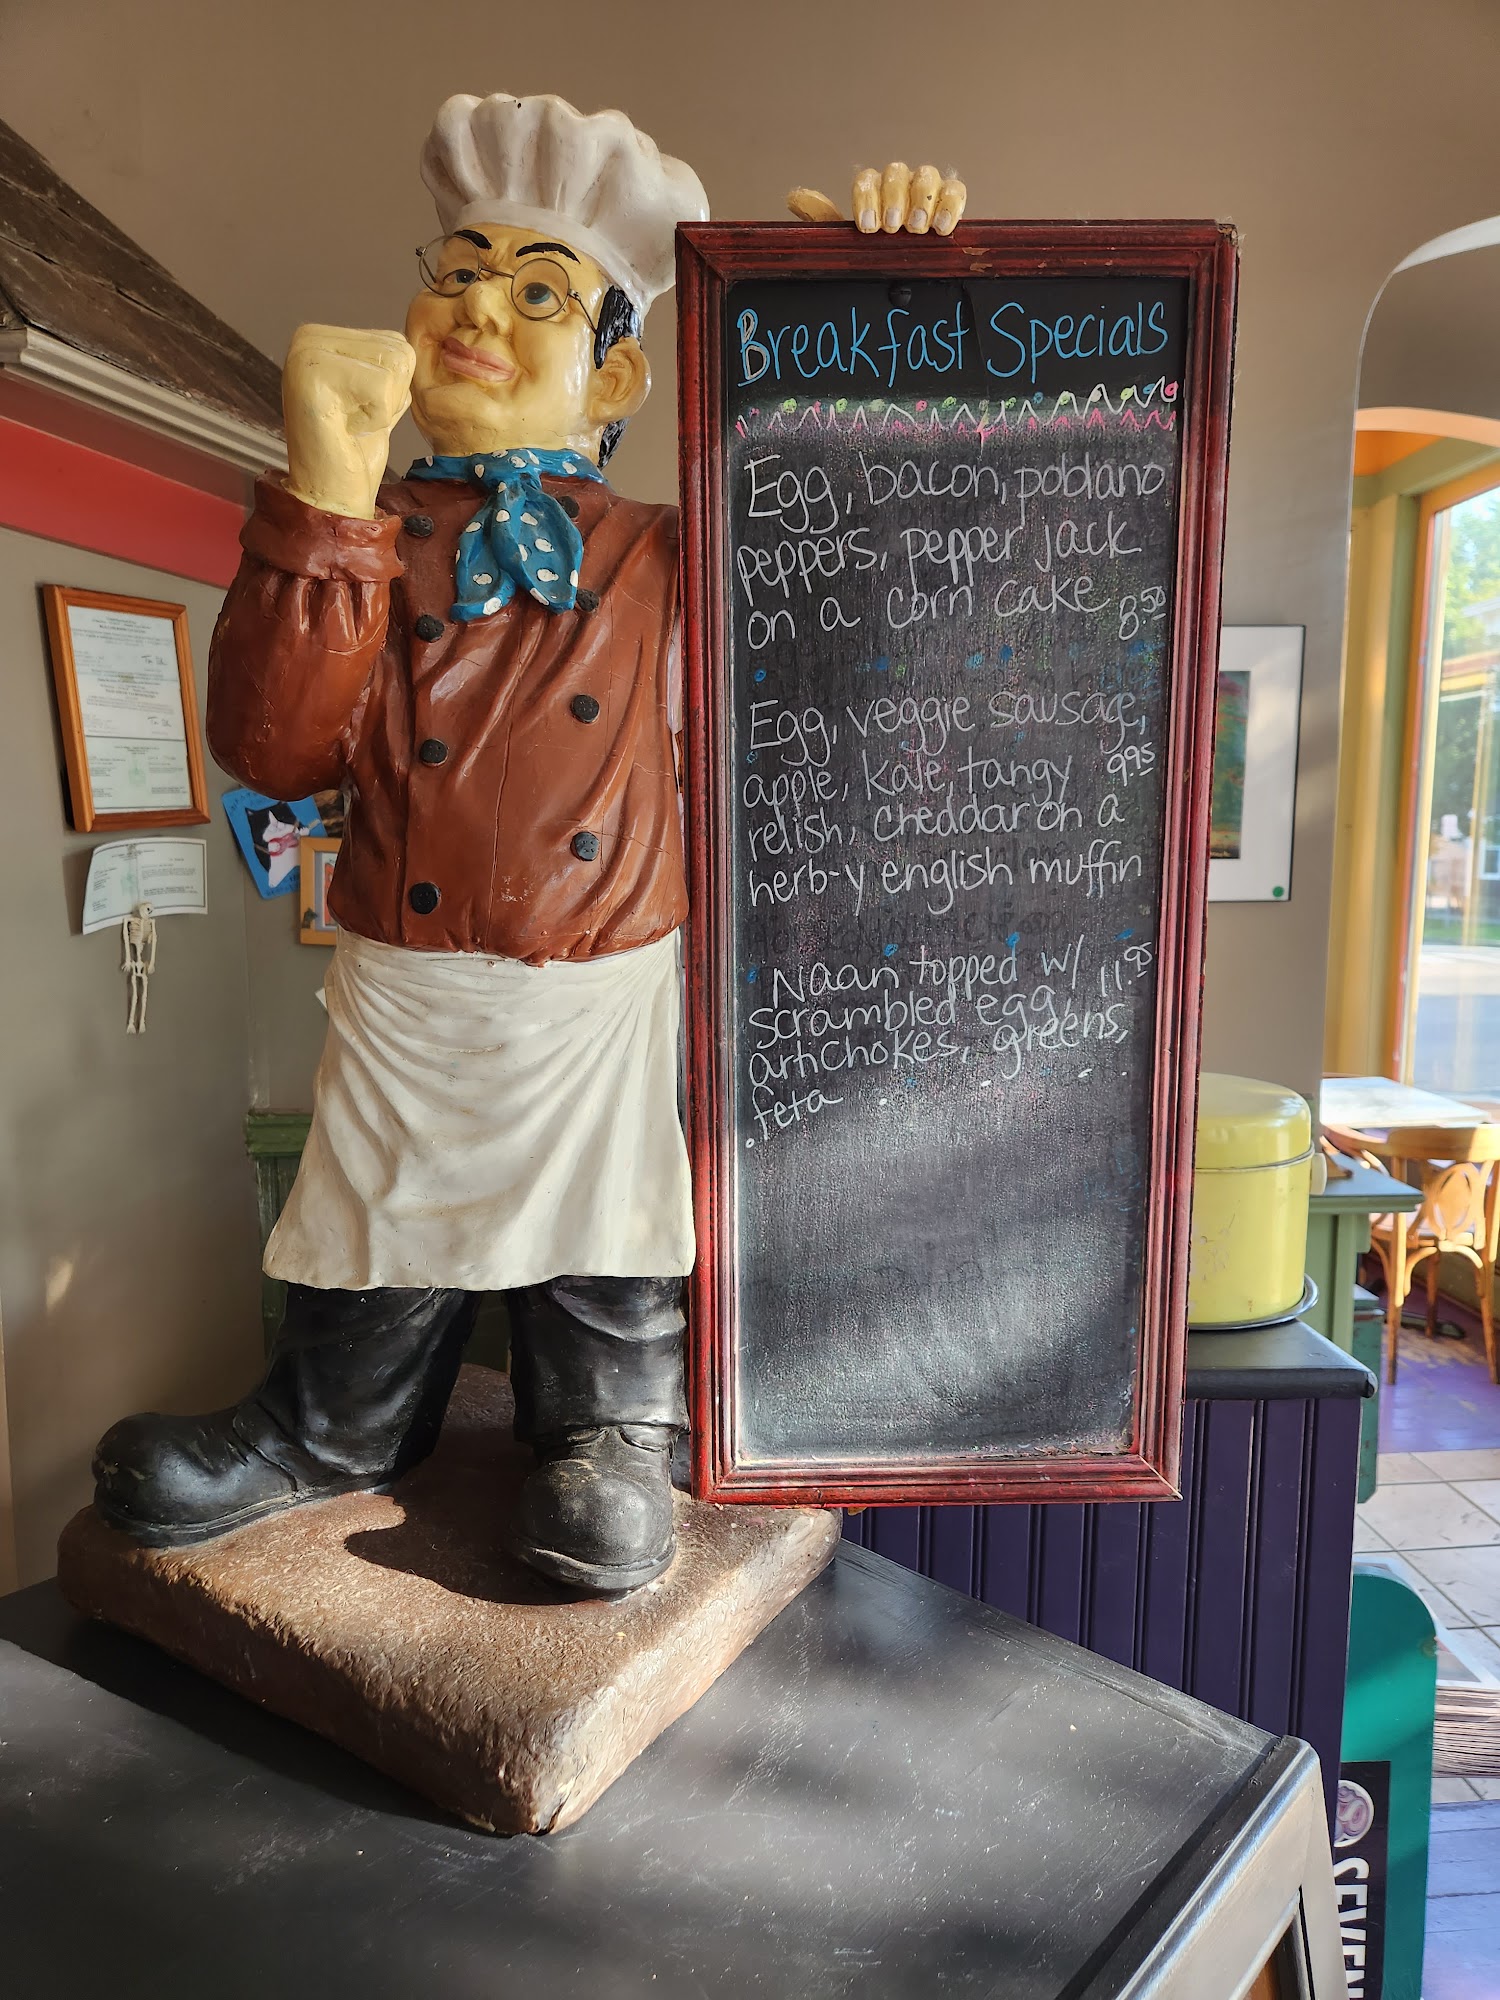 Breakfast Specials
Egg, bacon, poblano
peppers, pepper jack
on a corn cake 8.50
Egg, veggie sausage,
apple, kale, tangy 9.95
relish, cheddar on a
herb-y english muffin
Naan topped w/ 11.95
scrambled egg,
artichokes, greens,
feta
SEVEN